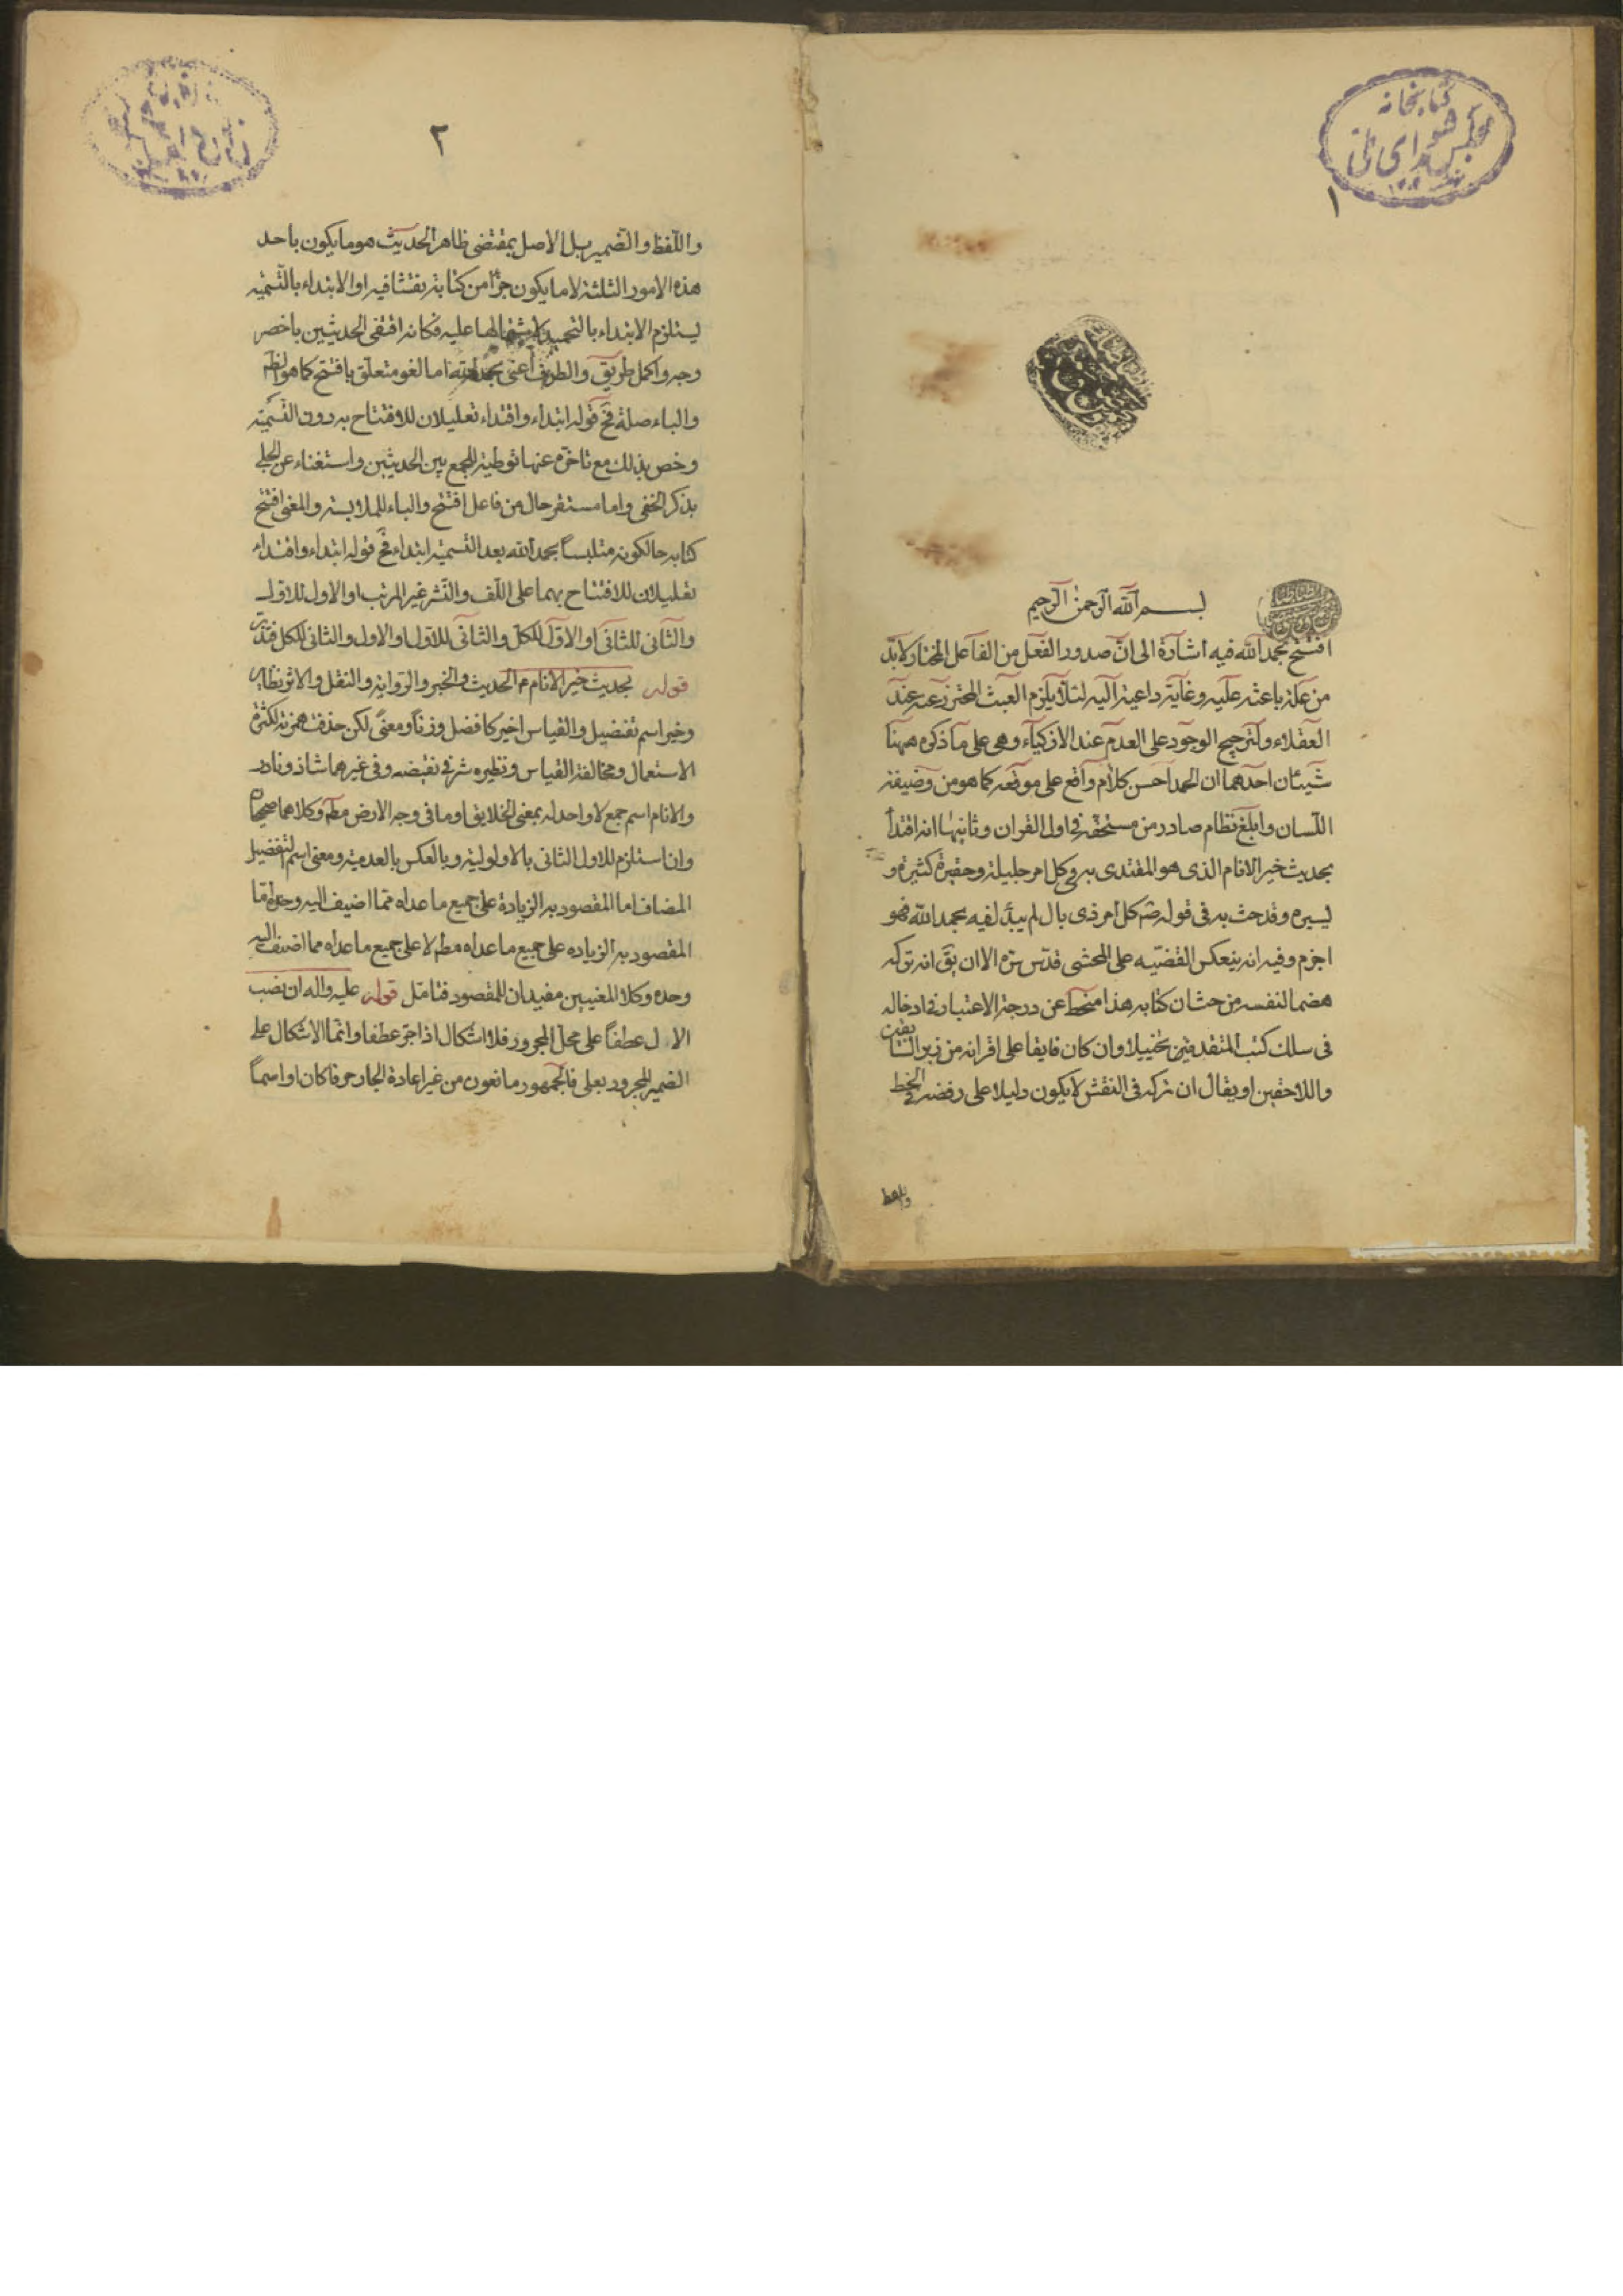 كتابخانه
۱
بسم الله الرحمن الرحيم
افتتح بحمد الله فيه اشارة الى ان صدور الفعل من الفاعل المختار لا بد
من علة باعثة عليه وغاية داعية اليه لئلا يلزم العبث المحترز عنه عند
العقلاء والترجيح الوجود على العدم عند الاذكياء وهى على ما ذكره ههنا
شيئان احدهما ان الحمد احسن كلام واقع على موقعه كما هو من وضيفة
اللسان وابلغ نظام صادر من مستحقه فى اول القران وثانيها انه اقتدأ
بحديث خير الانام الذى هو المقتدى به فى كل امر جليلة وحقيرة كثيرة و
يسيره وقد حث به فى قوله صم كل امر ذى بال لم يبدأ فيه بحمد الله فهو
اجزم وفيه انه ينعكس القضيه على المحشى قدس سره الا ان يق انه تركه
هضما لنفسه من حث ان كتابه هذا منحط عن درجة الاعتبار فى ادخاله
فى سلك كتب المتقدمين تخييلا وان كان فايقا على اقرانه من زبر السابقين
واللاحقين او يقال ان تركه فى النقش لا يكون دليلا على رفضه فى الخط
واللفظ
۲
واللفظ والضمير بل الاصل بمقتضى ظاهر الحديث هو ما يكون باحد
هذه الامور الثلثة لا ما يكون جزأ من كتابة نقشا فيه او الابتداء بالتسميه
يستلزم الابتداء بالتحميد لاشتمالها عليه فكانه اقتفى الحديثين باخصر
وجه واكمل طريق والظرف اعنى بحمد الله اما لغو متعلق بافتتح كما هو الظ
والباء صلة فح قوله ابتداء واقتداء تعليلان للافتتاح به دون التسمية
وخص بذلك مع تاخره عنها توطية للجمع بين الحديثين واستغناء عن الجلى
بذكر الخفى واما مستقر حال من فاعل افتتح والباء للملابسة والمعنى افتتح
كتابه حالكونه متلبسا بحمد الله بعد التسمية ابتداء فح قوله ابتداء واقتداء
تعليلان للافتتاح بهما على اللف والنشر غير المرتب او الاول للاول
والثانى للثانى او الاول للكل والثانى للاول او الاول والثانى للكل فتدبر
قوله بحديث خير الانام م الحديث والخبر والرواية والنقل والاثر نظاير
وخير اسم تفضيل والقياس اخير كافضل وزنا ومعنى لكن حذفت همزته لكثرة
الاستعمال ومخالفة القياس ونظيره شر فى نقيضه وفى غيرهما شاذ ونادر
والانام اسم جمع لا واحد له بمعنى الخلايق او ما فى وجه الارض مطم وكلاهما صحيحان
وان استلزم للاول الثانى بالاولولية وبالعكس بالعدمية ومعنى اسم التفضيل
المضاف اما المقصود به الزيادة على جميع ما عداه مما اضيف اليه وحده واما
المقصود به الزياده على جميع ما عداه مطم لا على جميع ما عداه مما اضيف اليه
وحده وكلا المعنيين مفيدان للمقصود فتامل قوله عليه واله ان نصب
الال عطفا على محل المجرور فلا اشكال اذا جر عطفا وانما الاشكال على
الضمير المجرور بعلى فالجمهور مانعون من غير اعادة الجار حرفا كان او اسما